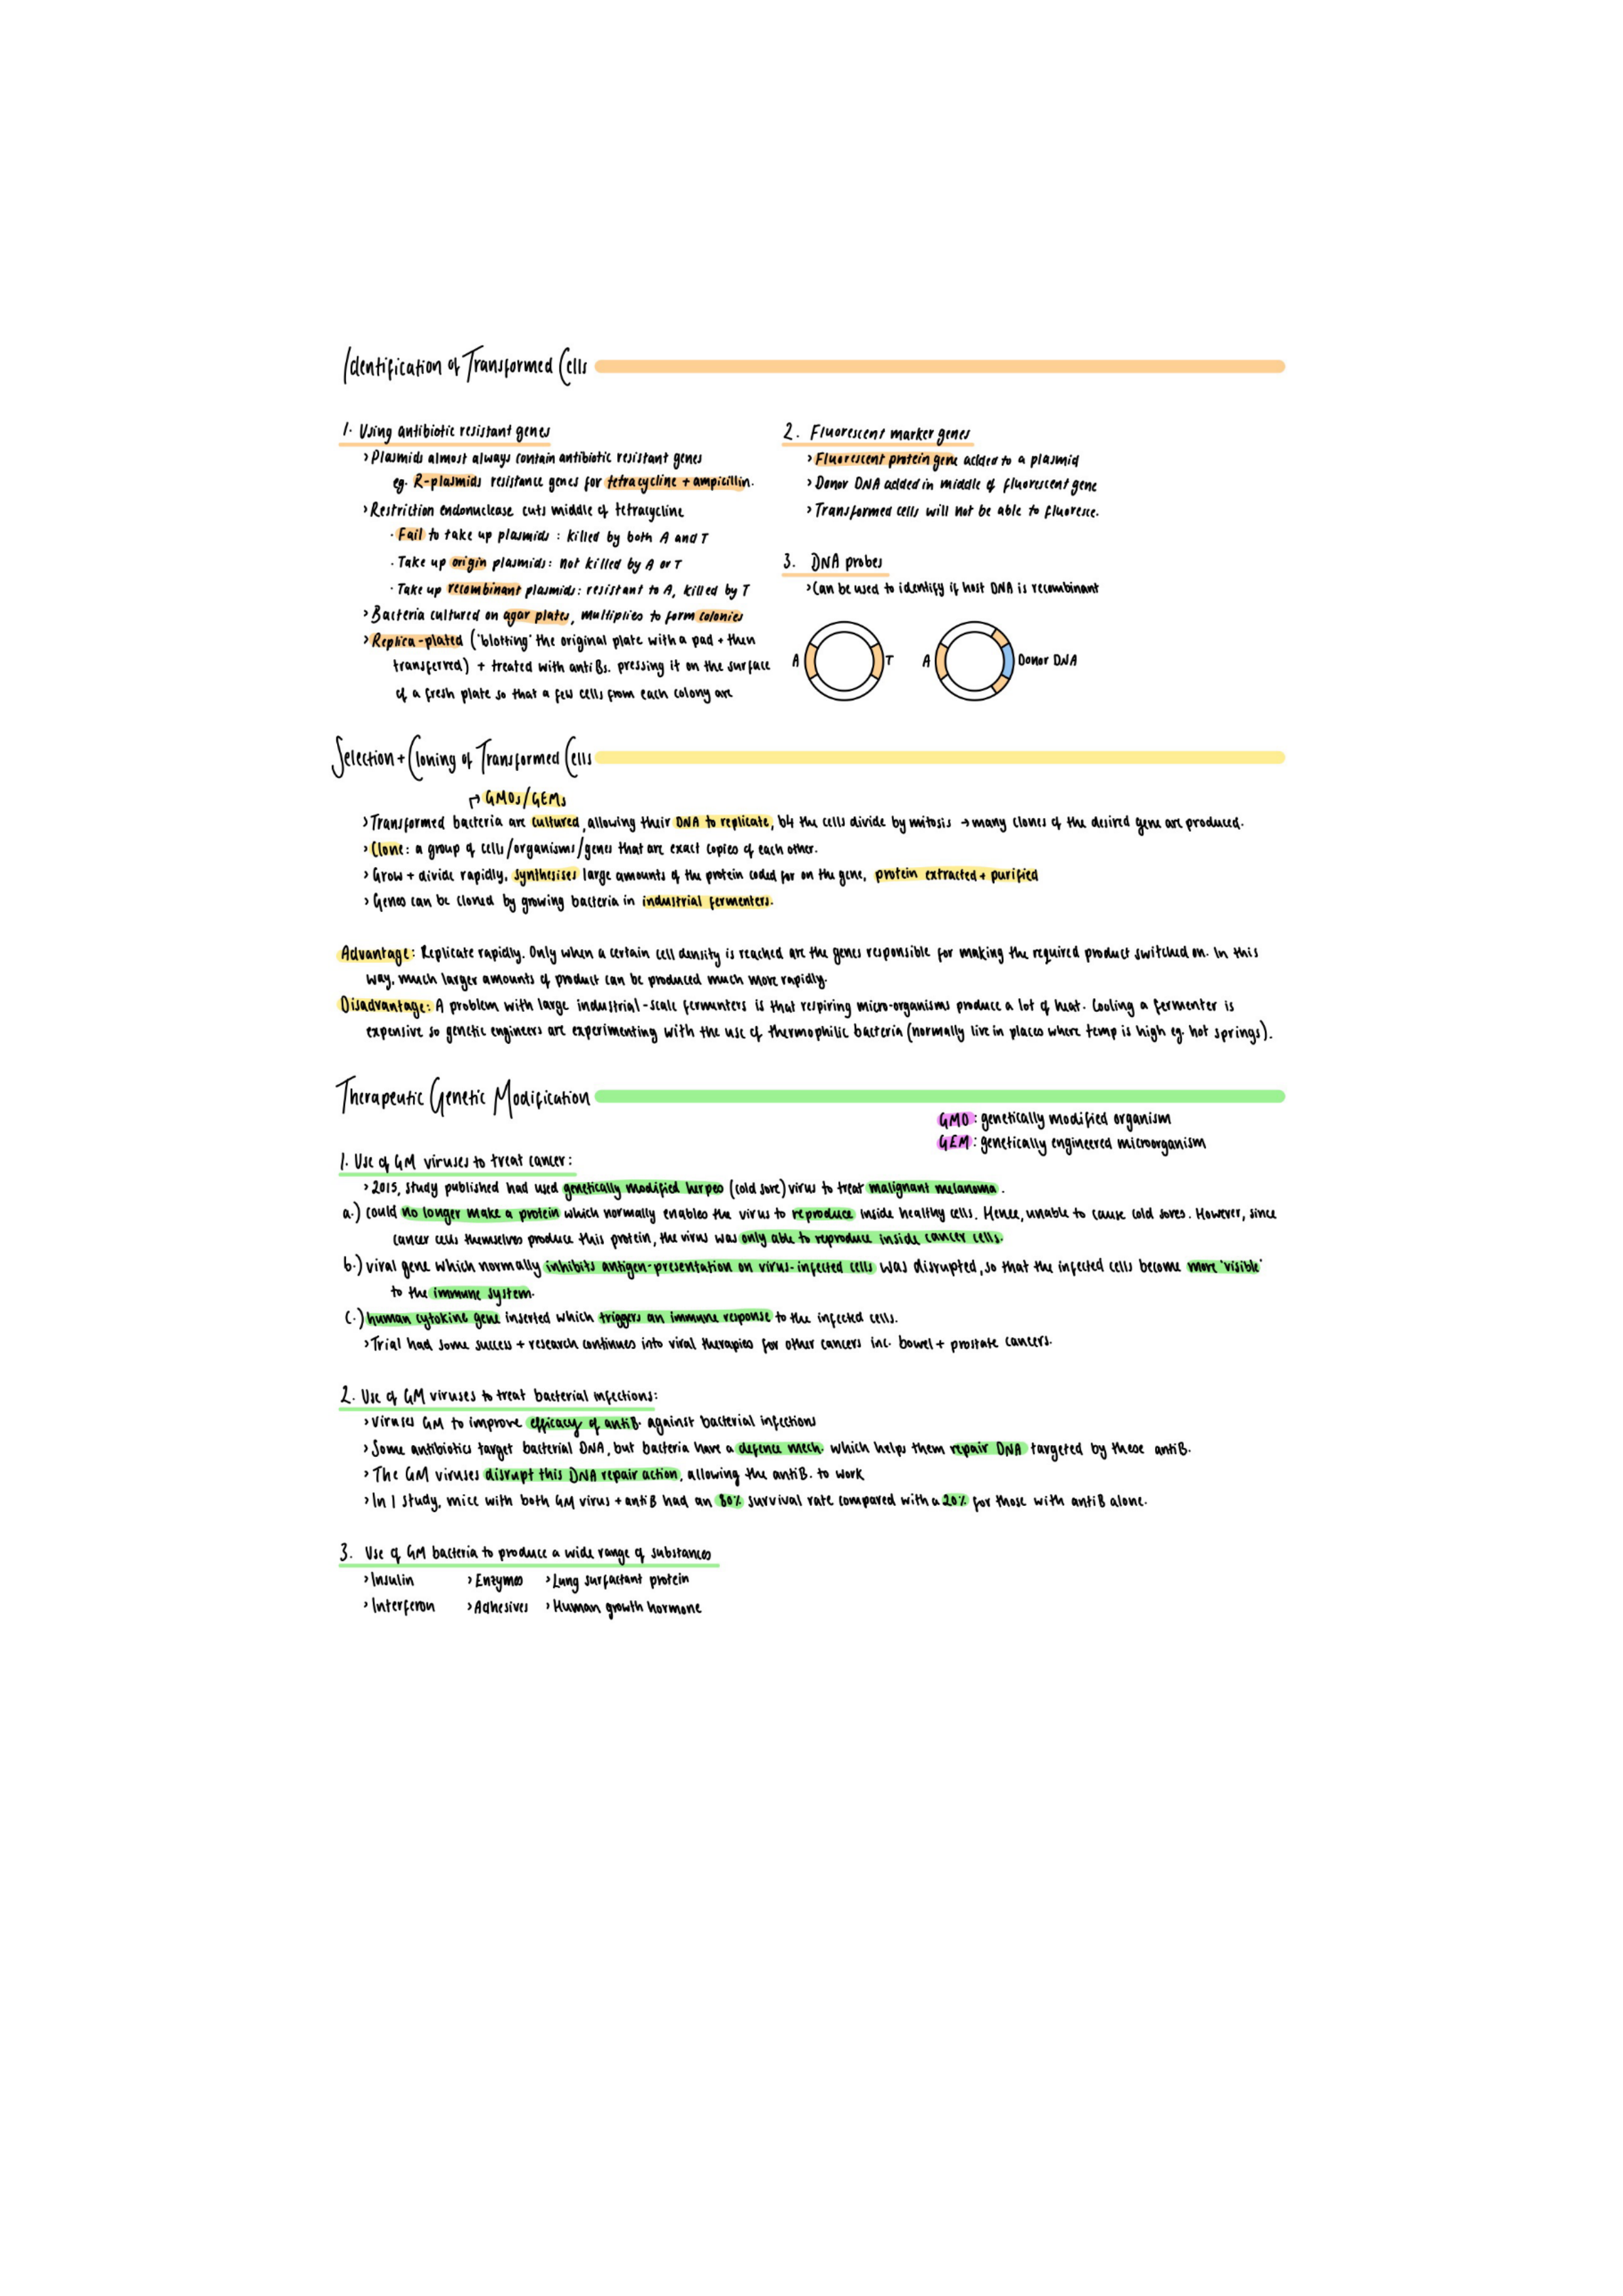 Identification of Transformed Cells
1. Using antibiotic resistant genes
> Plasmids almost always contain antibiotic resistant genes
eg. R-plasmids resistance genes for tetracycline + ampicillin.
> Restriction endonuclease cuts middle of tetracycline
· Fail to take up plasmids : killed by both A and T
· Take up origin plasmids: not killed by A or T
· Take up recombinant plasmids: resistant to A, killed by T
> Bacteria cultured on agar plates, multiplies to form colonies
> Replica-plated ('blotting' the original plate with a pad + then
transferred) + treated with antiBs. pressing it on the surface
of a fresh plate so that a few cells from each colony are
2. Fluorescent marker genes
> Fluorescent protein gene added to a plasmid
> Donor DNA added in middle of fluorescent gene
> Transformed cells will not be able to fluoresce.
3. DNA probes
> Can be used to identify if host DNA is recombinant
A T A Donor DNA
Selection + Cloning of Transformed Cells
↱ GMOs/GEMs
> Transformed bacteria are cultured, allowing their DNA to replicate, b4 the cells divide by mitosis → many clones of the desired gene are produced.
> Clone: a group of cells/organisms/genes that are exact copies of each other.
> Grow + divide rapidly, synthesises large amounts of the protein coded for on the gene, protein extracted + purified
> Genes can be cloned by growing bacteria in industrial fermenters.
Advantage: Replicate rapidly. Only when a certain cell density is reached are the genes responsible for making the required product switched on. In this
way, much larger amounts of product can be produced much more rapidly.
Disadvantage: A problem with large industrial-scale fermenters is that respiring micro-organisms produce a lot of heat. Cooling a fermenter is
expensive so genetic engineers are experimenting with the use of thermophilic bacteria (normally live in places where temp is high eg. hot springs).
Therapeutic Genetic Modification
GMO: genetically modified organism
GEM: genetically engineered microorganism
1. Use of GM viruses to treat cancer:
> 2015, study published had used genetically modified herpes (cold sore) virus to treat malignant melanoma.
a.) could no longer make a protein which normally enables the virus to reproduce inside healthy cells. Hence, unable to cause cold sores. However, since
cancer cells themselves produce this protein, the virus was only able to reproduce inside cancer cells.
b.) viral gene which normally inhibits antigen-presentation on virus-infected cells was disrupted, so that the infected cells become more 'visible'
to the immune system.
c.) human cytokine gene inserted which triggers an immune response to the infected cells.
> Trial had some success + research continues into viral therapies for other cancers inc. bowel + prostate cancers.
2. Use of GM viruses to treat bacterial infections:
> Viruses GM to improve efficacy of antiB. against bacterial infections
> Some antibiotics target bacterial DNA, but bacteria have a defence mech. which helps them repair DNA targeted by these antiB.
> The GM viruses disrupt this DNA repair action, allowing the antiB. to work
> In 1 study, mice with both GM virus + antiB had an 80% survival rate compared with a 20% for those with antiB alone.
3. Use of GM bacteria to produce a wide range of substances
> Insulin > Enzymes > Lung surfactant protein
> Interferon > Adhesives > Human growth hormone